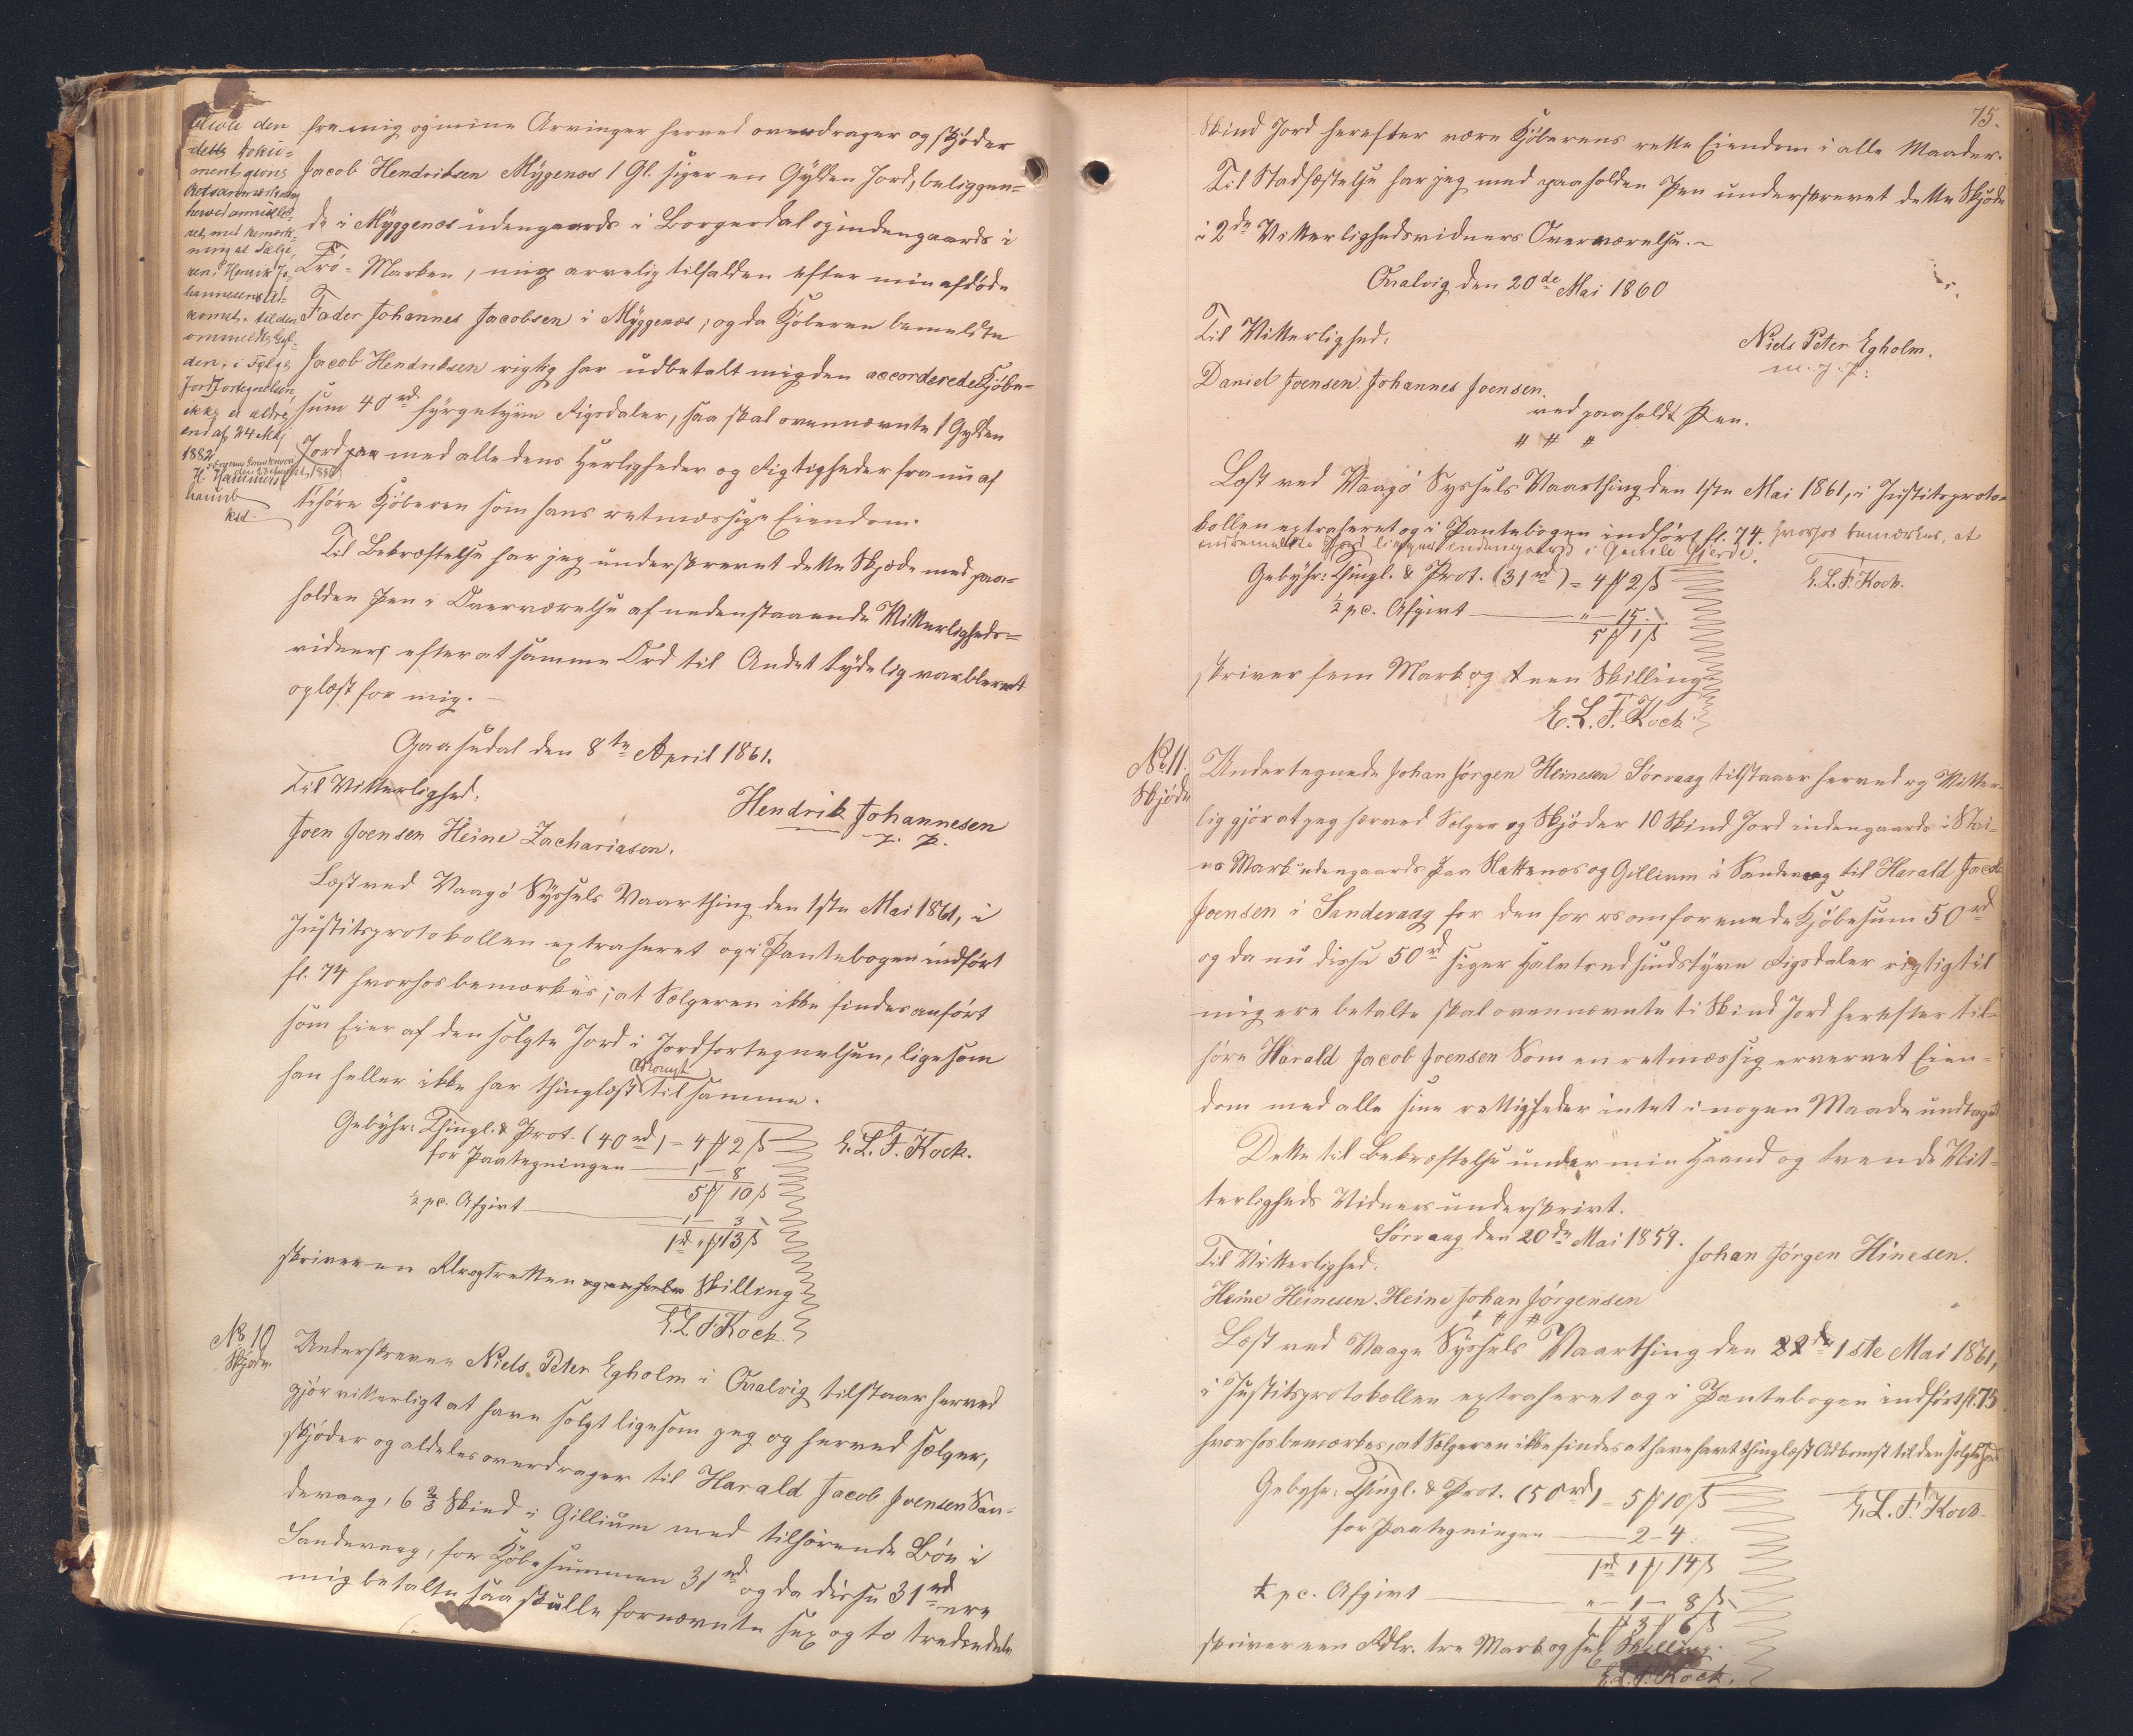 den
dette Doku-
ment gions
herved annulle-
ret, med Bemærk-
ning at Sælge-
ren, Henrik Jo-
hannesens Ad-
komst til den
ommeldte Gyl-
den, i Følge
Jordfortegnelsen,
ikke er ældre
end af 24 Maj
1882
H. Hammers-
haimb
kst.
fra mig og mine Arvinger herved overdrager og skjøder
Jacob Hendriksen Mygenæs 1 Gl. siger en Gylden Jord, beliggen-
de i Myggenæs udengaards i Borgerdal og indengaards i
Trö-Marken, mig arvelig tilfalden efter min afdøde
Fader Johannes Jacobsen i Myggenæs, og da Kjöberen bemeldte
Jacob Hendriksen rigtig har udbetalt mig den accorderede Kjöbe-
sum 40 rd fyrgetyve Rigsdaler, saa skal ovennævnte 1 Gylden
Jord med alle dens Herligheder og Rigtigheder fra nu af
tilhöre Kjöberen som hans retmæssige Eiendom.
Til Bekræftelse har jeg underskrevet dette Skjøde med paa-
holden Pen i Overværelse af nedenstaaende Vitterligheds-
vidner, efter at samme Ord til Andet tydelig var blevet
oplæst for mig. —
Gaasedal den 8de April 1861.
Til Vitterlighed:
Hendrik Johannesen
Joen Joensen Heine Zachariasen.
Læst ved Vaagö Syssels Vaarthing den 1ste Mai 1861, i
Justitsprotokollen extraheret og i Pantebogen indført
fl. 74 hvorhos bemærkes, at Sælgeren ikke findes anført
som Eier af den solgte Jord i Jordfortegnelsen, ligesom
han heller ikke har thinglæst Adkomst til samme.
Gebyhr: Thingl. & Prot. (40 rd) = 4 ₰ 2 ß
E. L. F. Koch.
for Paategningen — 1 — 8
5 ₰ 10 ß
½ pc. Afgivt — 1 — 3
1 rd " ₰ 13 ß
skriver en Rd og tretten og en halv Skilling
E. L. F. Koch
No 10
Skjøde
Underskrevne Niels Peter Egholm i Qvalvig tilstaar herved
gjör vitterligt at have solgt ligesom jeg og herved sælger,
skjöder og aldeles overdrager til Harald Jacob Joensen San-
devaag, 6 2/3 Skind i Gillium med tilhörende Böe i
Sandevaag, for Kjöbesummen 31 rd og da disse 31 rd ere
mig betalte saa skulle fornævnte sex og to trediedele
75.
Skind Jord herefter være Kjöberens rette Eiendom i alle Maader.
Til Stadfæstelse har jeg med paaholden Pen underskrevet dette Skjöde
i 2de Vitterlighedsvidners Overværelse. ~
Qvalvig den 20de Mai 1860
Til Vitterlighed.
Niels Peter Egholm.
m. f. P.
Daniel Joensen. Johannes Joensen.
ved paaholdt Pen.
# # #
Læst ved Vaagö Syssels Vaarthing den 1ste Mai 1861, i Justitsproto-
kollen extraheret og i Pantebogen indført fl. 74. hvorhos bemærkes, at
ommeldte Jord ligger indengaards i Gamle Gjerde.
Gebyhr: Thingl. & Prot. (31 rd) = 4 ₰ 2 ß
E. L. F. Koch.
½ pc. Afgivt — " — 15
5 ₰ 1 ß
skriver fem Mark og een Skilling
E. L. F. Koch
No 11.
Skjöde
Undertegnede Johan Jörgen Heinesen Sörvaag tilstaaer herved og Vitter-
lig gjör at jeg herved Sælger og Skjöder 10 Skind Jord indengaards i
Mark udengaards paa Hattenæs og Gillium i Sandevaag til Harald Jacob
Joensen i Sandevaag for den for os omforenede Kjöbesum 50 rd
og da nu disse 50 rd siger Halvtredsindstyve Rigsdaler rigtig til
mig ere betalte skal ovennævnte ti Skind Jord herefter til-
höre Harald Jacob Joensen Som en retmæssig ervervet Eien-
dom med alle sine rettigheder intet i nogen Maade undtaget
Dette til Bekræftelse under min Haand og tvende Vit-
terligheds Vidners underskrivt.
Sörvaag den 20de Mai 1859.
Til Vitterlighed.
Johan Jörgen Hinesen.
Heine Heinesen. Heine Johan Jörgensen
# # #
Læst ved Vaagö Syssels Vaarthing den 22de 1ste Mai 1861,
i Justitsprotokollen extraheret og i Pantebogen indført fl. 75
hvorhos bemærkes, at Sælgeren ikke findes at have havt thinglæst Adkomst til den solgte Jord
Gebyhr: Thingl. & Prot. (50 rd) = 5 ₰ 10 ß
E. L. F. Koch.
for Paategningen — 2 — 4
1 rd 1 ₰ 14 ß
½ pc. Afgivt — " — 1 — 8 ß
1 rd 3 ₰ 6 ß
skriver een Rdlr. tre Mark og sex Skilling.
E. L. F. Koch.